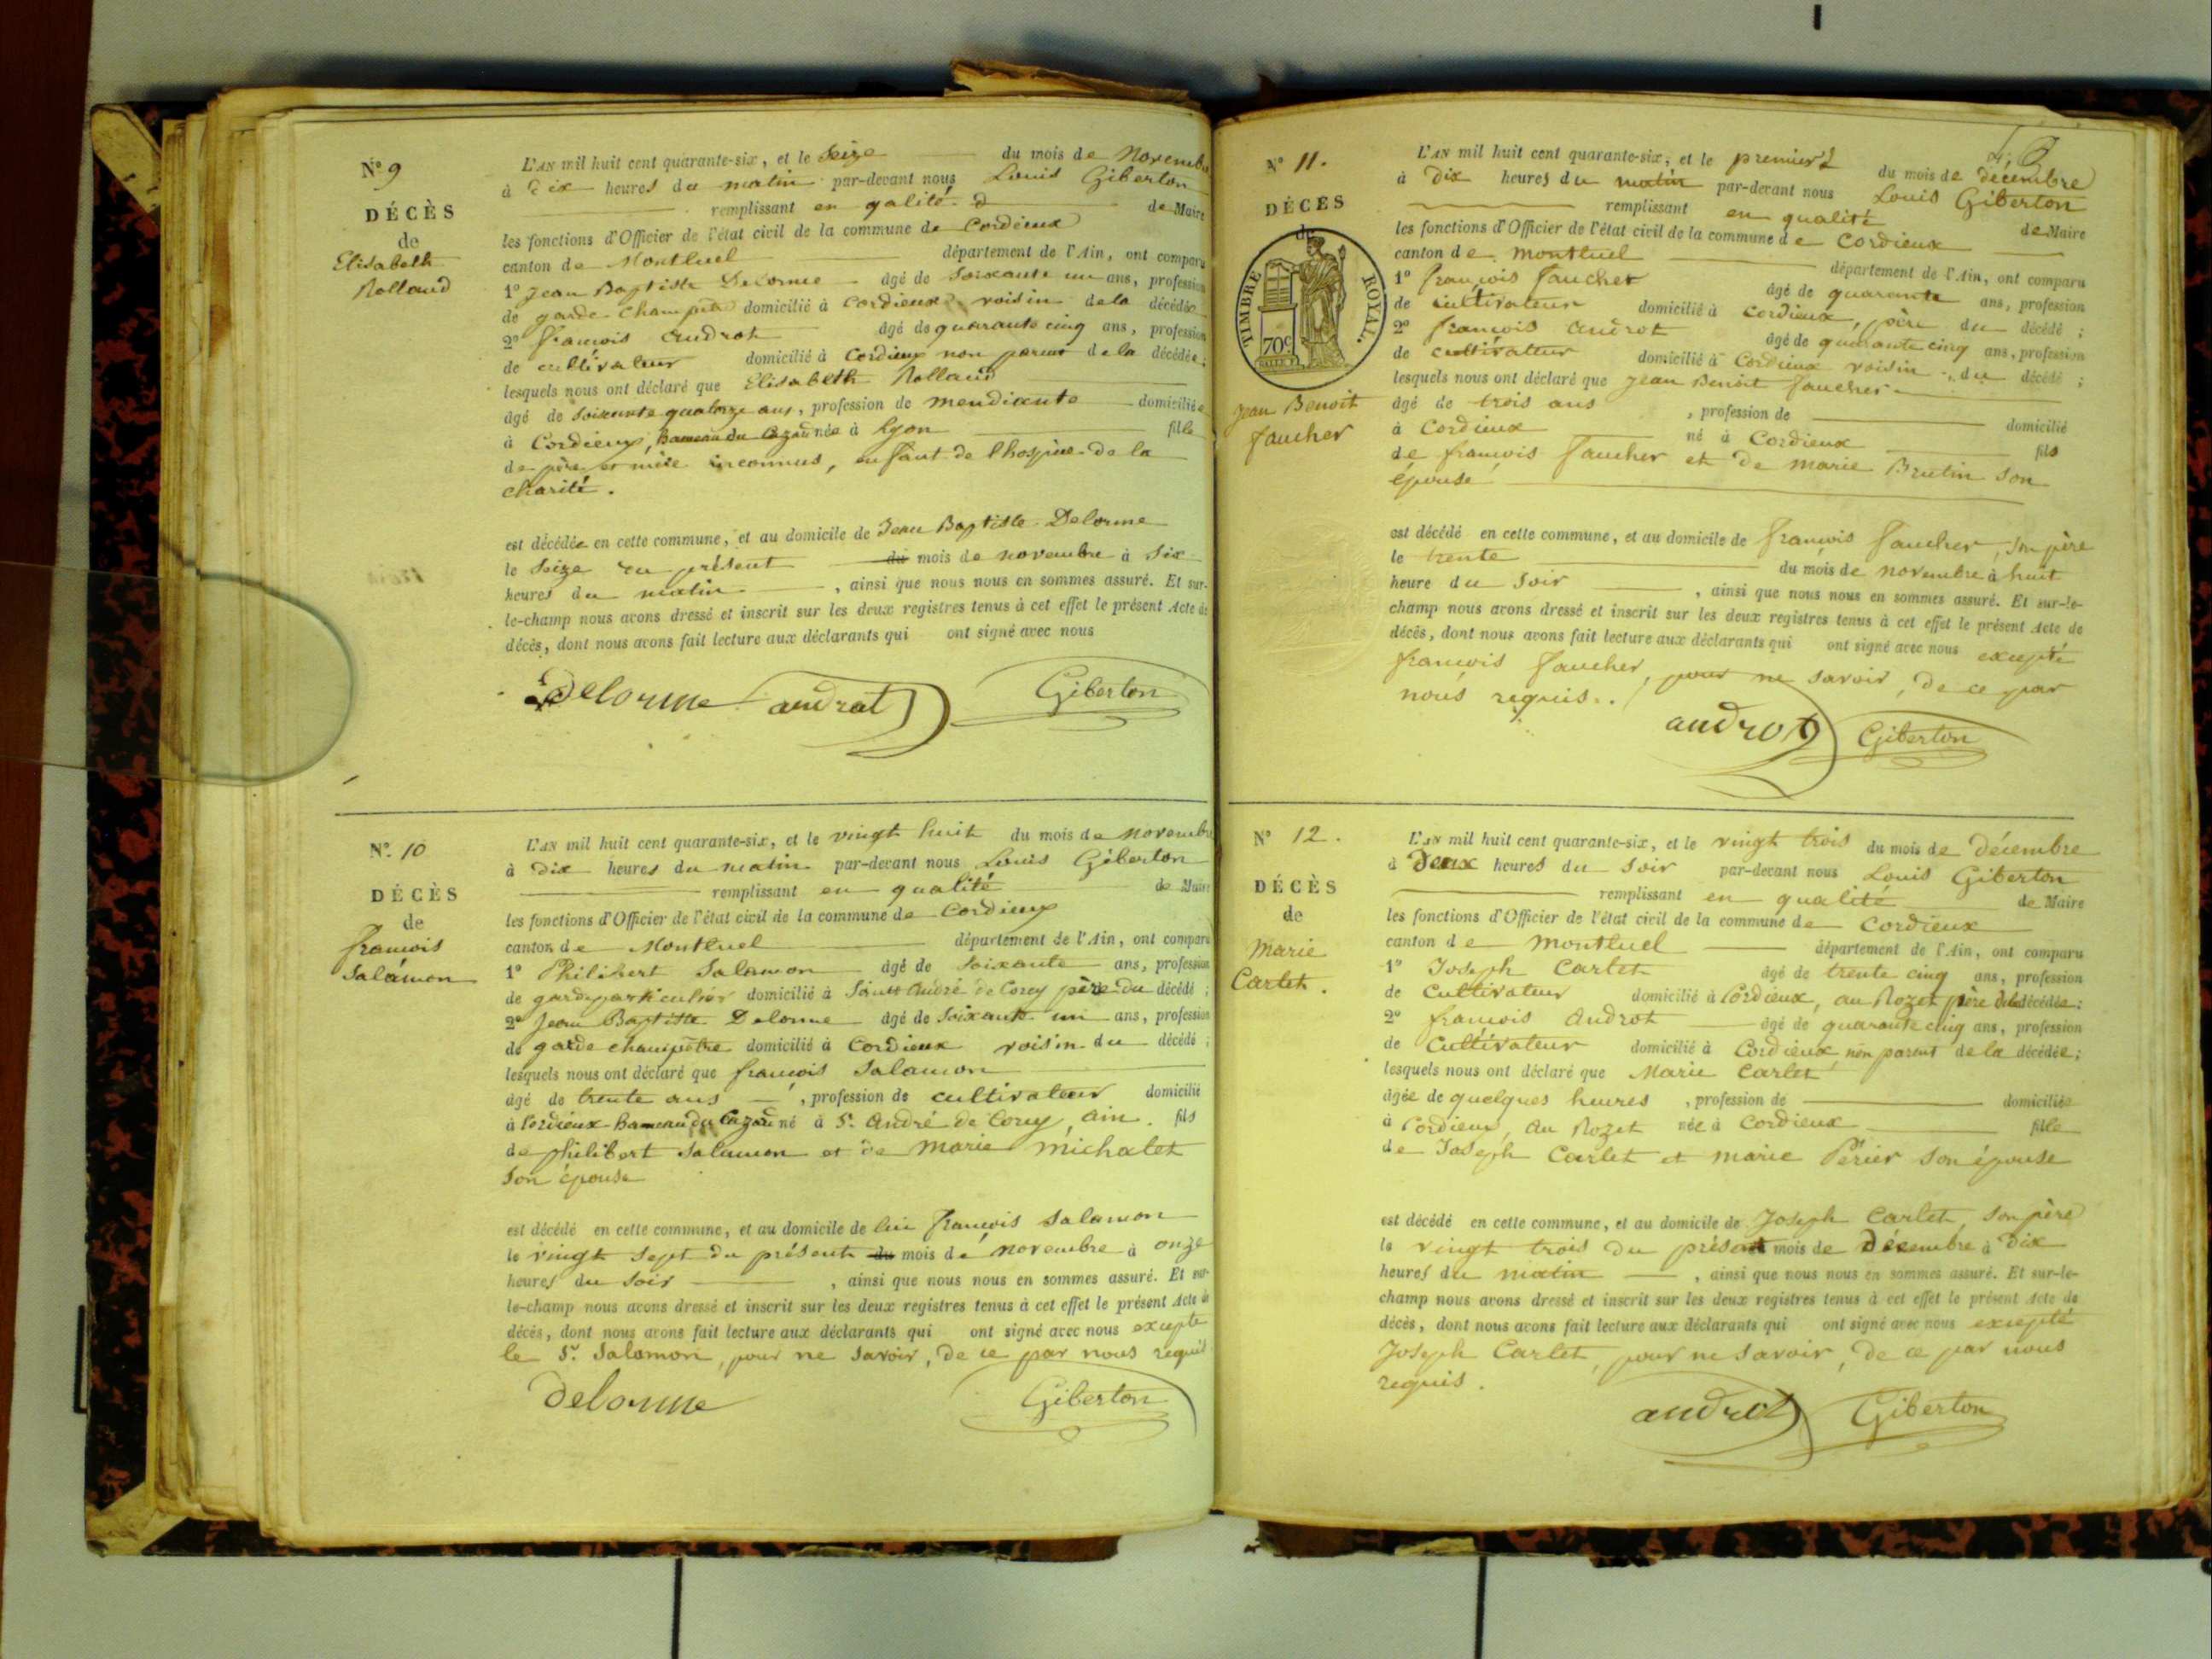 N° 9
DÉCÈS
de
Elisabeth
Rolland
L'AN mil huit cent quarante-six, et le Seize du mois de Novembre
à dix heures du matin par-devant nous Louis Giberton
remplissant en qalité d de Maire
les fonctions d'Officier de l'état civil de la commune de Cordieux
canton de Montluel département de l'Ain, ont comparu
1° Jean Baptiste Delorme âgé de Soixante un ans, profession
de garde champetre domicilié à Cordieux voisin de la décédée
2° françois Androt âgé de quarante cinq ans, profession
de cultivateur domicilié à Cordieux non parent de la décédée;
lesquels nous ont déclaré que Elisabeth Rolland
âgé de Soixante quatorze ans, profession de mendiante domiciliée
à Cordieux, hameau du née à Lyon fille
de père et mère inconnus, enfant de l'hospice de la
charité.
est décédée en cette commune, et au domicile de Jean Baptiste Delorme
le Seize du présent du mois de novembre à Six
heures du matin, ainsi que nous nous en sommes assuré. Et sur-
le-champ nous avons dressé et inscrit sur les deux registres tenus à cet effet le présent Acte de
décès, dont nous avons fait lecture aux déclarants qui ont signé avec nous
Delorme androt Giberton
N° 10
DÉCÈS
de
françois
Salamon
L'AN mil huit cent quarante-six, et le vingt huit du mois de novembre
à dix heures du matin par-devant nous Louis Giberton
remplissant en qualité de Maire
les fonctions d'Officier de l'état civil de la commune de Cordieux
canton de Montluel département de l'Ain, ont comparu
1° Philibert Salamon âgé de Soixante ans, profession
de garde particulier domicilié à Saint André de Corcy père du décédé;
2° Jean Baptiste Delorme âgé de Soixante un ans, profession
de garde champêtre domicilié à Cordieux voisin du décédé;
lesquels nous ont déclaré que françois Salamon
âgé de trente ans, profession de cultivateur domicilié
à Cordieux hameau du né à St. André de Corcy, ain. fils
de philibert Salamon et de marie michalet
Son épouse
est décédé en cette commune, et au domicile de lui françois Salamon
le vingt Sept du présent du mois de novembre à onze
heures du Soir, ainsi que nous nous en sommes assuré. Et sur-
le-champ nous avons dressé et inscrit sur les deux registres tenus à cet effet le présent Acte de
décès, dont nous avons fait lecture aux déclarants qui ont signé avec nous excepté
le Sr. Salamon, pour ne Savoir, de ce par nous requis
Delorme Giberton
N° 11.
DÉCÈS
de
TIMBRE ROYAL.
70c
Jean Benoit
faucher
L'AN mil huit cent quarante-six, et le premier du mois de décembre
à Dix heures du matin par-devant nous Louis Giberton
remplissant en qualité de Maire
les fonctions d'Officier de l'état civil de la commune de Cordieux
canton de montluel département de l'Ain, ont comparu
1° françois faucher âgé de quarante ans, profession
de cultivateur domicilié à Cordieux, père du décédé;
2° françois Androt âgé de quarante cinq ans, profession
de cultivateur domicilié à Cordieux voisin du décédé;
lesquels nous ont déclaré que Jean Benoit faucher
âgé de trois ans, profession de domicilié
à Cordieux né à Cordieux fils
de françois faucher et de marie Brutin Son
épouse
est décédé en cette commune, et au domicile de françois faucher, Son père
le trente du mois de novembre à huit
heure du Soir, ainsi que nous nous en sommes assuré. Et sur-le-
champ nous avons dressé et inscrit sur les deux registres tenus à cet effet le présent Acte de
décès, dont nous avons fait lecture aux déclarants qui ont signé avec nous excepté
françois faucher, pour ne Savoir, de ce par
nous requis.
androt Giberton
N° 12.
DÉCÈS
de
marie
Carlet.
L'AN mil huit cent quarante-six, et le vingt trois du mois de décembre
à Deux heures du Soir par-devant nous Louis Giberton
remplissant en qualité de Maire
les fonctions d'Officier de l'état civil de la commune de Cordieux
canton de montluel département de l'Ain, ont comparu
1° Joseph Carlet âgé de trente cinq ans, profession
de Cultivateur domicilié à Cordieux, au Rozet père de la décédée;
2° françois Androt âgé de quarante cinq ans, profession
de Cultivateur domicilié à Cordieux non parent de la décédée;
lesquels nous ont déclaré que Marie Carlet
âgée de quelques heures, profession de domiciliée
à Cordieux, au Rozet née à Cordieux fille
de Joseph Carlet et marie Périer Son épouse
est décédé en cette commune, et au domicile de Joseph Carlet, Son père
le vingt trois du présent mois de Décembre à Dix
heures du matin, ainsi que nous nous en sommes assuré. Et sur-le-
champ nous avons dressé et inscrit sur les deux registres tenus à cet effet le présent Acte de
décès, dont nous avons fait lecture aux déclarants qui ont signé avec nous excepté
Joseph Carlet, pour ne Savoir, de ce par nous
requis.
androt Giberton